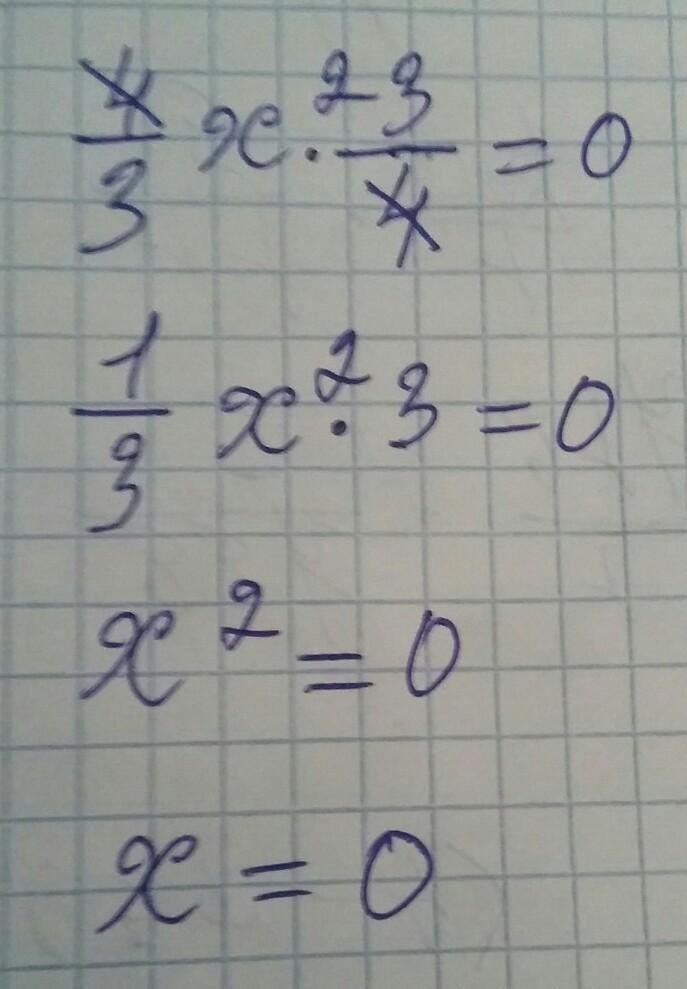 4/3 x² · 3/4 = 0
1/3 x² · 3 = 0
x² = 0
x = 0